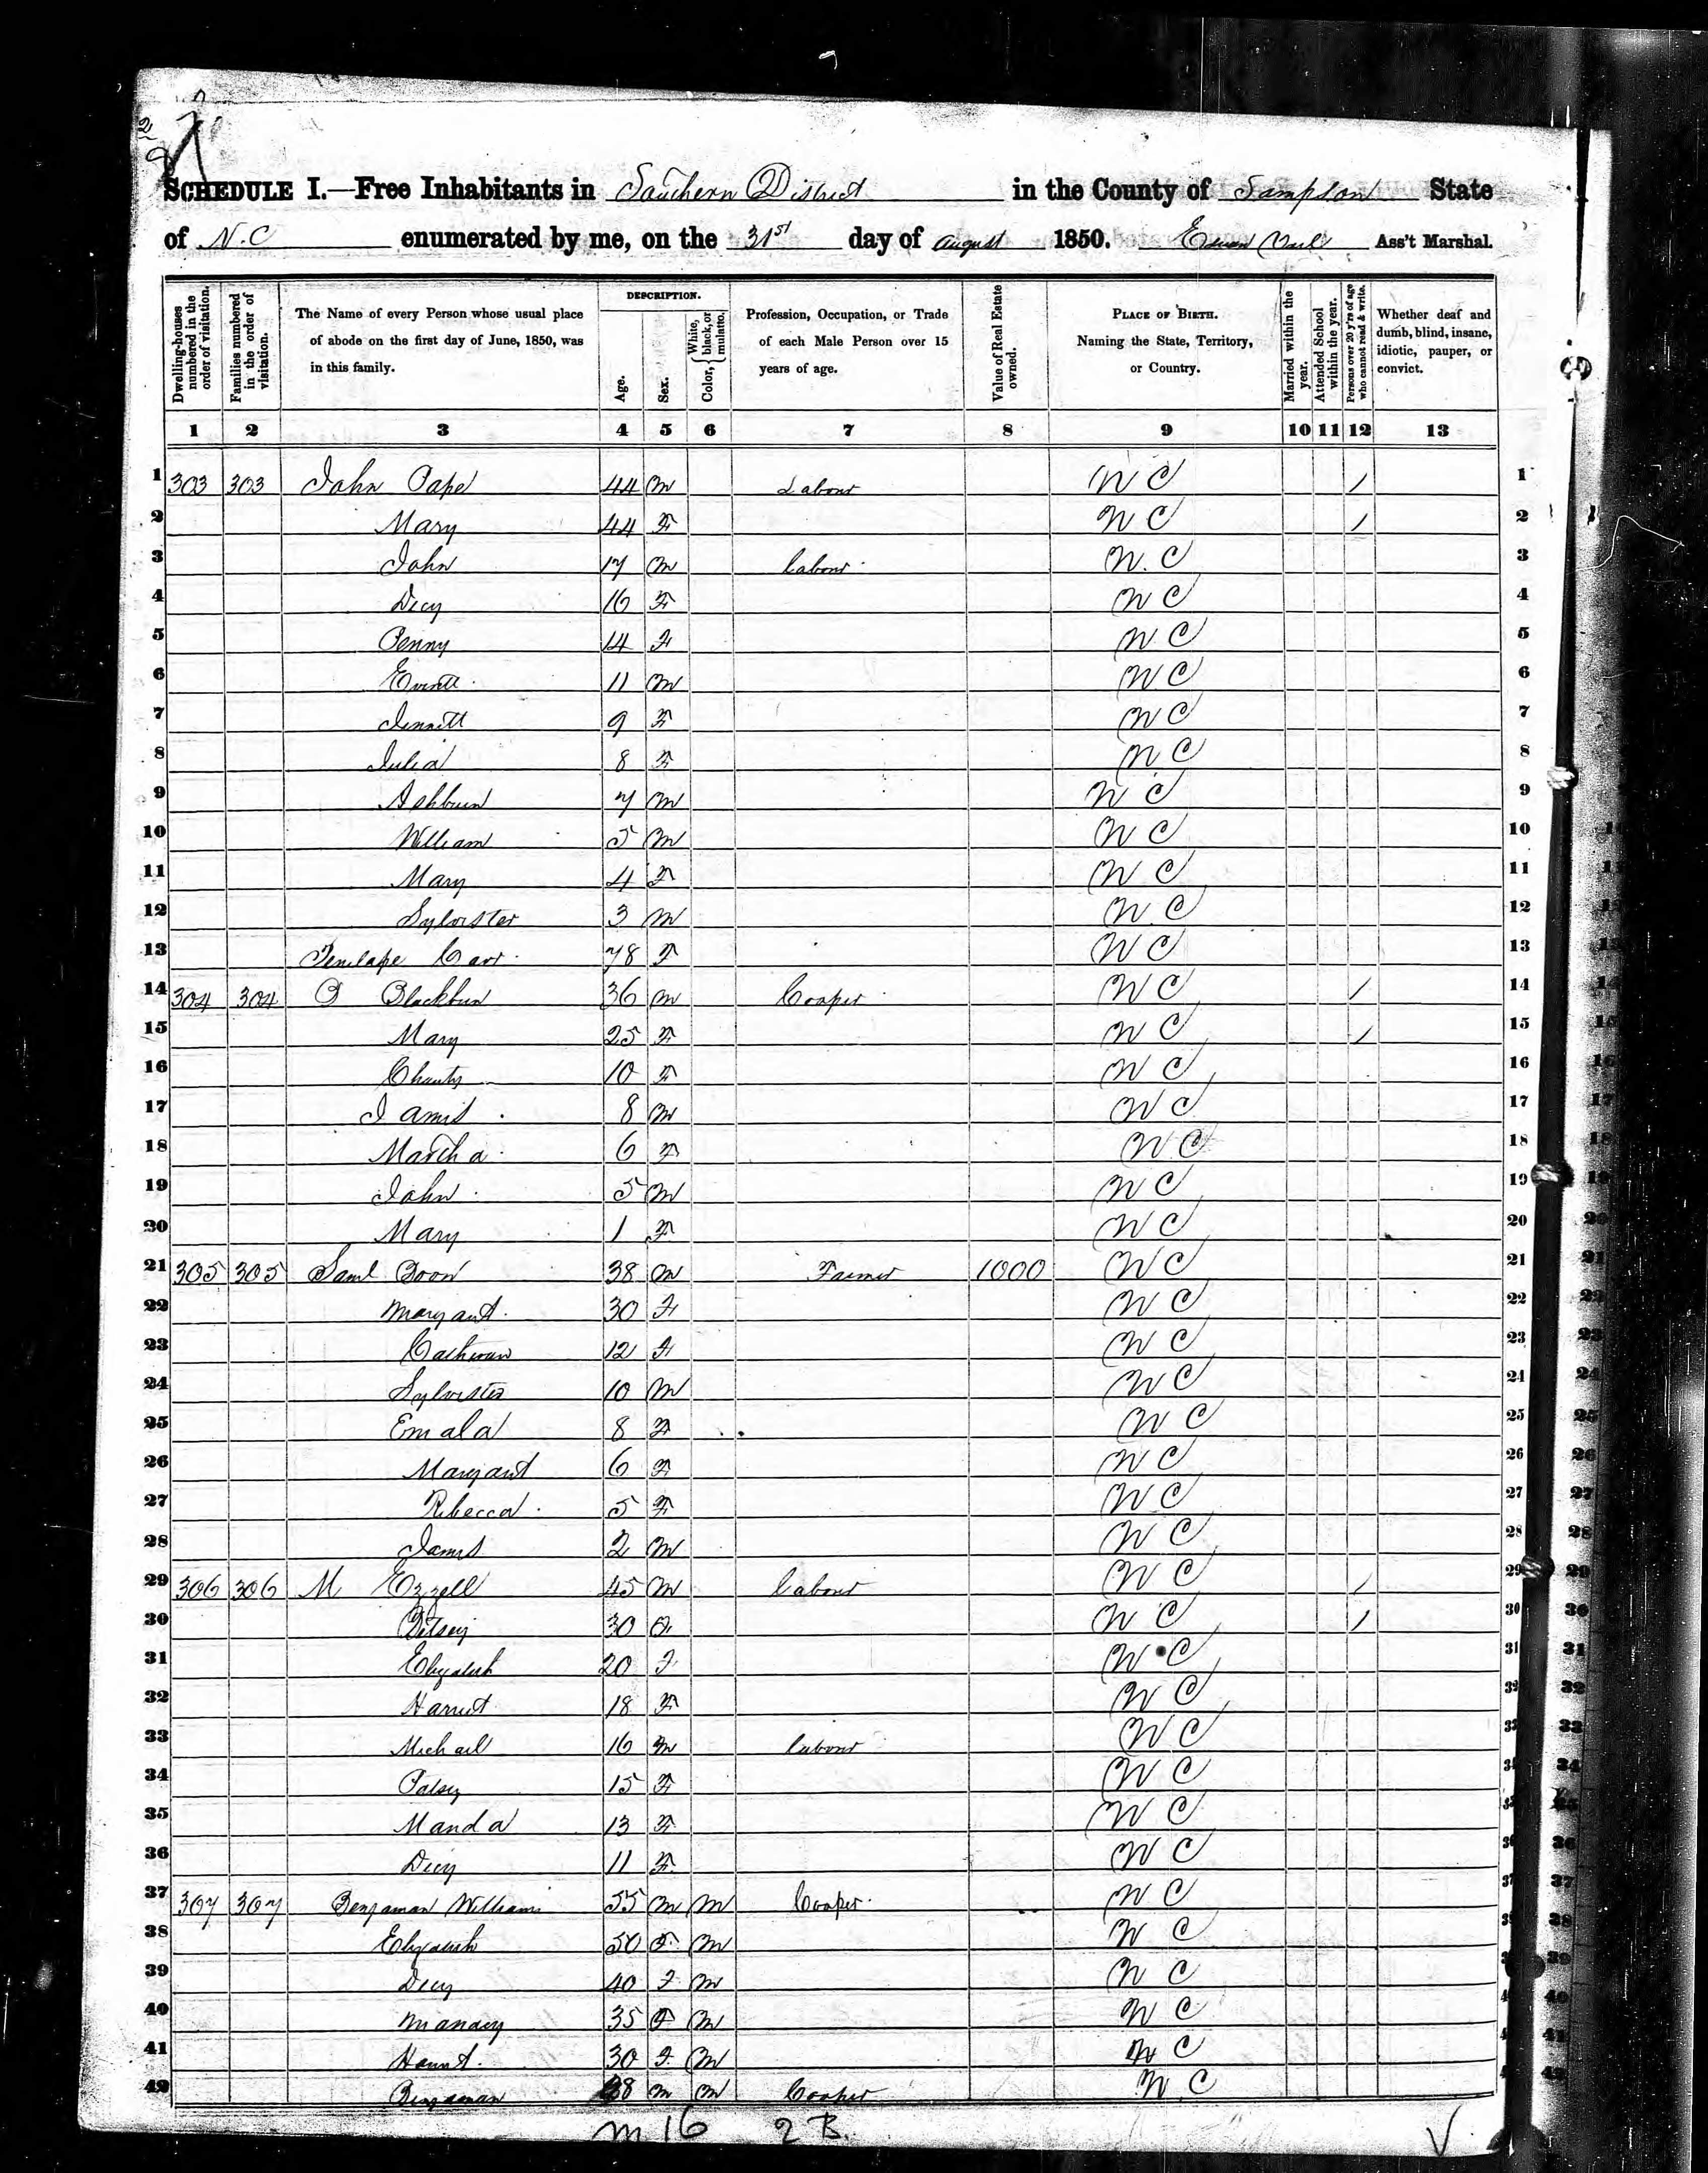 SCHEDULE I.—Free Inhabitants in Southern District in the County of Sampson State
of N.C enumerated by me, on the 31st day of August 1850. Ass't Marshal.
Dwelling-houses numbered in the order of visitation.
Families numbered in the order of visitation.
The Name of every Person whose usual place of abode on the first day of June, 1850, was in this family.
DESCRIPTION.
Age.
Sex.
Color, White, black, or mulatto.
Profession, Occupation, or Trade of each Male Person over 15 years of age.
Value of Real Estate owned.
PLACE OF BIRTH. Naming the State, Territory, or Country.
Married within the year.
Attended School within the year.
Persons over 20 y'rs of age who cannot read & write.
Whether deaf and dumb, blind, insane, idiotic, pauper, or convict.
1 2 3 4 5 6 7 8 9 10 11 12 13
1 303 303 John Pape 44 m Labour N C / 1
2 Mary 44 F N C / 2
3 John 17 m Labour N. C 3
4 Dicy 16 F N C 4
5 Penny 14 F N C 5
6 11 m N C 6
7 Jennett 9 F N C 7
8 Julia 8 F N C 8
9 Ashburn 7 m N C 9
10 William 5 m N C 10
11 Mary 4 F N C 11
12 Sylvister 3 m N C 12
13 Penelape Carr 78 F N C 13
14 304 304 B Blackburn 36 m Cooper N C / 14
15 Mary 25 F N C / 15
16 10 F N C 16
17 James 8 m N C 17
18 Martha 6 F N C 18
19 John 5 m N C 19
20 Mary 1 F N C 20
21 305 305 Saml Boon 38 m Farmer 1000 N C 21
22 Margaret 30 F N C 22
23 12 F N C 23
24 Sylvister 10 m N C 24
25 Emala 8 F N C 25
26 Margaret 6 F N C 26
27 Rebecca 5 F N C 27
28 James 2 m N C 28
29 306 306 M Ezzell 45 m Labour N C / 29
30 Betsey 30 F N C / 30
31 Elizabeth 20 F N C 31
32 Harriet 18 F N C
33 Michael 16 m Labour N C
34 Patsy 15 F N C
35 Manda 13 F N C
36 Dicy 11 F N C
37 307 307 Benjaman Williams 55 m m Cooper N C
38 Elizabeth 50 F m N C
39 Dicy 40 F m N C
40 35 F m N C
41 30 F m N C
42 Benjaman 38 m m Cooper N C
M 16 2 B.